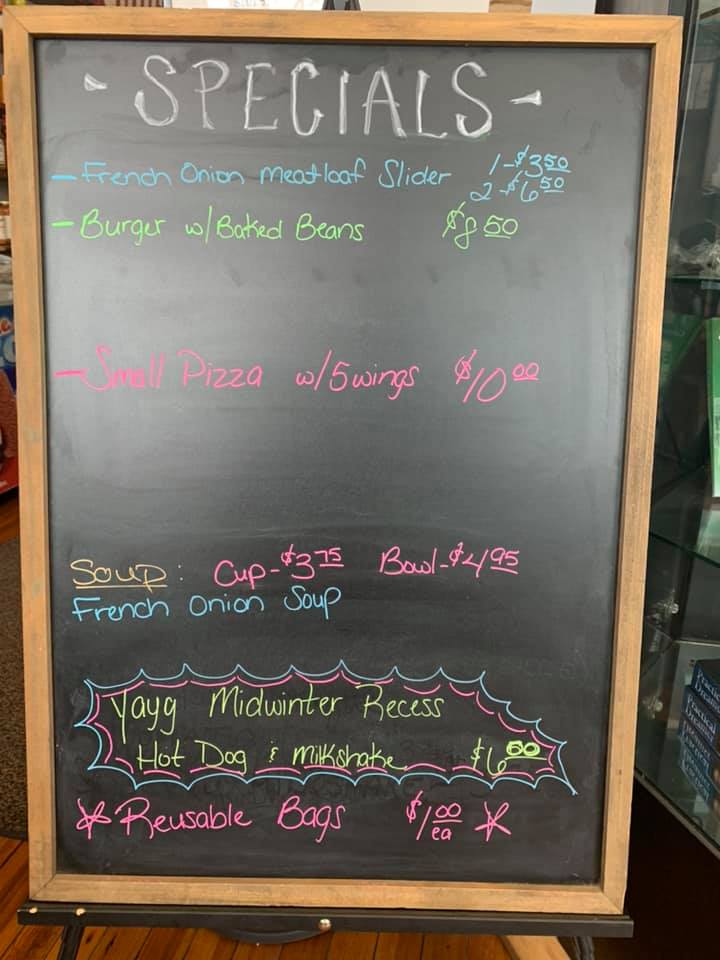 - SPECIALS -
- French Onion Meatloaf Slider 1-$3.50
2-$6.50
- Burger w/Baked Beans $8.50
- Small Pizza w/5 wings $10.00
Soup: Cup-$3.75 Bowl-$4.95
French Onion Soup
Yayy Midwinter Recess
Hot Dog & Milkshake $6.50
* Reusable Bags $1.00 ea *